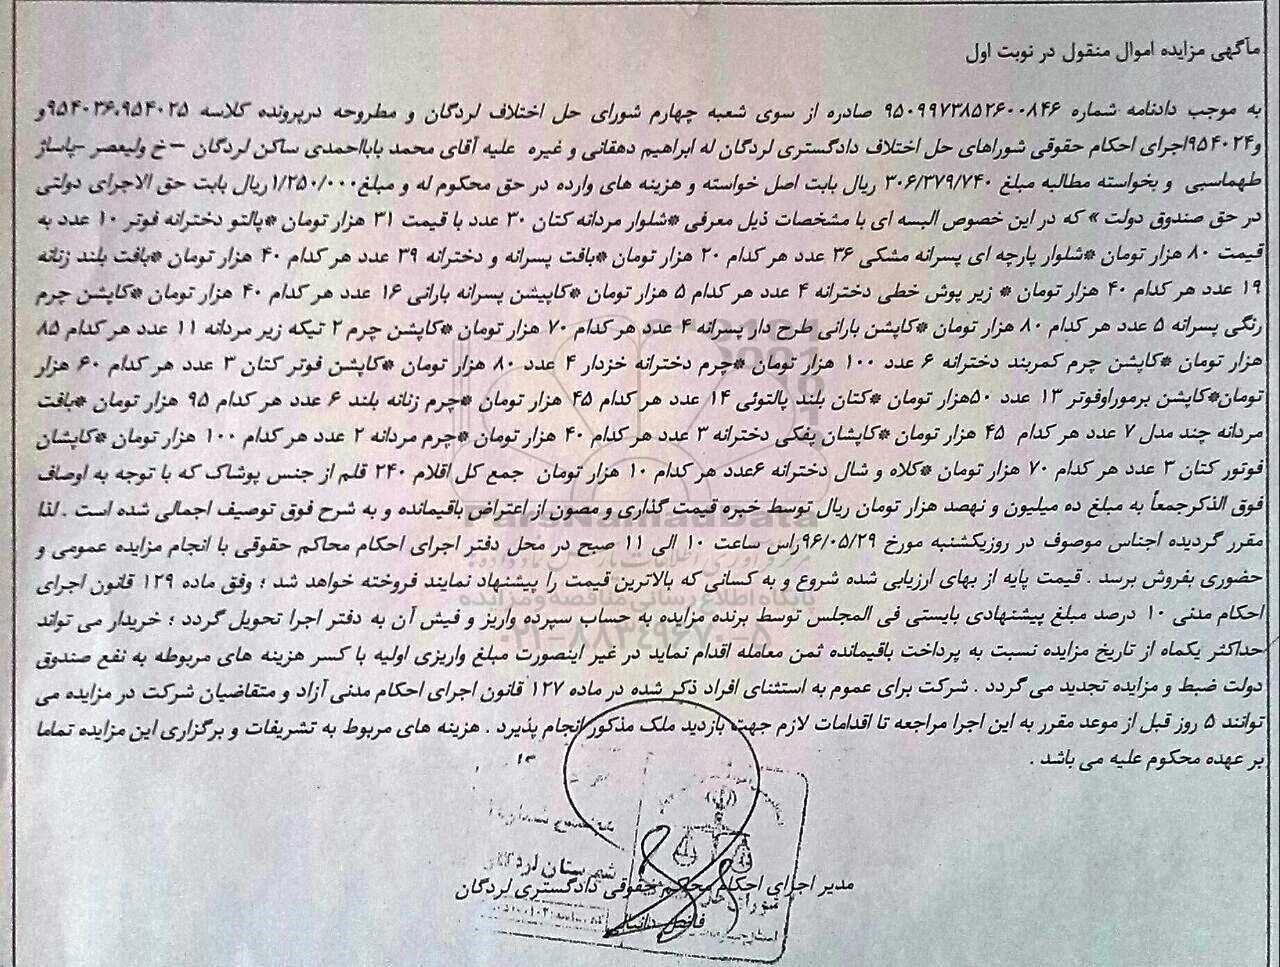 مآگهی مزایده اموال منقول در نوبت اول
به موجب دادنامه شماره ۹۵۰۹۹۷۳۸۵۲۶۰۰۸۴۶ صادره از سوی شعبه چهارم شورای حل اختلاف لردگان و مطروحه درپرونده کلاسه ۹۵۴۰۳۶،۹۵۴۰۲۵و
و۹۵۴۰۲۴اجرای احکام حقوقی شوراهای حل اختلاف دادگستری لردگان له ابراهیم دهقانی و غیره علیه آقای محمد بابااحمدی ساکن لردگان –خ ولیعصر –پاساژ
طهماسبی و بخواسته مطالبه مبلغ ۳۰۶/۳۷۹/۷۴۰ ریال بابت اصل خواسته و هزینه های وارده در حق محکوم له و مبلغ۱/۲۵۰/۰۰۰ریال بابت حق الاجرای دولتی
در حق صندوق دولت » که در این خصوص البسه ای با مشخصات ذیل معرفی *شلوار مردانه کتان ۳۰ عدد با قیمت ۳۱ هزار تومان *پالتو دخترانه فوتر ۱۰ عدد به
قیمت ۸۰ هزار تومان *شلوار پارچه ای پسرانه مشکی ۳۶ عدد هر کدام ۲۰ هزار تومان *بافت پسرانه و دخترانه ۳۹ عدد هر کدام ۴۰ هزار تومان *بافت بلند زنانه
۱۹ عدد هر کدام ۴۰ هزار تومان * زیر پوش خطی دخترانه ۴ عدد هر کدام ۵ هزار تومان *کاپیشن پسرانه بارانی ۱۶ عدد هر کدام ۴۰ هزار تومان *کاپشن چرم
رنگی پسرانه ۵ عدد هر کدام ۸۰ هزار تومان *کاپشن بارانی طرح دار پسرانه ۴ عدد هر کدام ۷۰ هزار تومان *کاپشن چرم ۲ تیکه زیر مردانه ۱۱ عدد هر کدام ۸۵
هزار تومان *کاپشن چرم کمربند دخترانه ۶ عدد ۱۰۰ هزار تومان *چرم دخترانه خزدار ۴ عدد ۸۰ هزار تومان *کاپشن فوتر کتان ۳ عدد هر کدام ۶۰ هزار
تومان*کاپشن برموراوفوتر ۱۳ عدد ۵۰هزار تومان *کتان بلند پالتوئی ۱۴ عدد هر کدام ۴۵ هزار تومان *چرم زنانه بلند ۶ عدد هر کدام ۹۵ هزار تومان *بافت
مردانه چند مدل ۷ عدد هر کدام ۴۵ هزار تومان *کاپشان پفکی دخترانه ۳ عدد هر کدام ۴۰ هزار تومان *چرم مردانه ۲ عدد هر کدام ۱۰۰ هزار تومان *کاپشان
فوتور کتان ۳ عدد هر کدام ۷۰ هزار تومان *کلاه و شال دخترانه ۶عدد هر کدام ۱۰ هزار تومان جمع کل اقلام ۲۴۰ قلم از جنس پوشاک که با توجه به اوصاف
فوق الذکرجمعاً به مبلغ ده میلیون و نهصد هزار تومان ریال توسط خبره قیمت گذاری و مصون از اعتراض باقیمانده و به شرح فوق توصیف اجمالی شده است . لذا
مقرر گردیده اجناس موصوف در روزیکشنبه مورخ ۹۶/۰۵/۲۹راس ساعت ۱۰ الی ۱۱ صبح در محل دفتر اجرای احکام محاکم حقوقی با انجام مزایده عمومی و
حضوری بفروش برسد . قیمت پایه از بهای ارزیابی شده شروع و به کسانی که بالاترین قیمت را پیشنهاد نمایند فروخته خواهد شد ؛ وفق ماده ۱۲۹ قانون اجرای
احکام مدنی ۱۰ درصد مبلغ پیشنهادی بایستی فی المجلس توسط برنده مزایده به حساب سپرده واریز و فیش آن به دفتر اجرا تحویل گردد ؛ خریدار می تواند
حداکثر یکماه از تاریخ مزایده نسبت به پرداخت باقیمانده ثمن معامله اقدام نماید در غیر اینصورت مبلغ واریزی اولیه با کسر هزینه های مربوطه به نفع صندوق
دولت ضبط و مزایده تجدید می گردد . شرکت برای عموم به استثنای افراد ذکر شده در ماده ۱۲۷ قانون اجرای احکام مدنی آزاد و متقاضیان شرکت در مزایده می
توانند ۵ روز قبل از موعد مقرر به این اجرا مراجعه تا اقدامات لازم جهت بازدید ملک مذکور انجام پذیرد . هزینه های مربوط به تشریفات و برگزاری این مزایده تماما
بر عهده محکوم علیه می باشد .
ParsNamadData
پایگاه اطلاع رسانی مناقصه و مزایده
۰۲۱-۸۸۳۴۹۶۷۰-۵
شهرستان لردگان
مدیر اجرای احکام محاکم حقوقی دادگستری لردگان